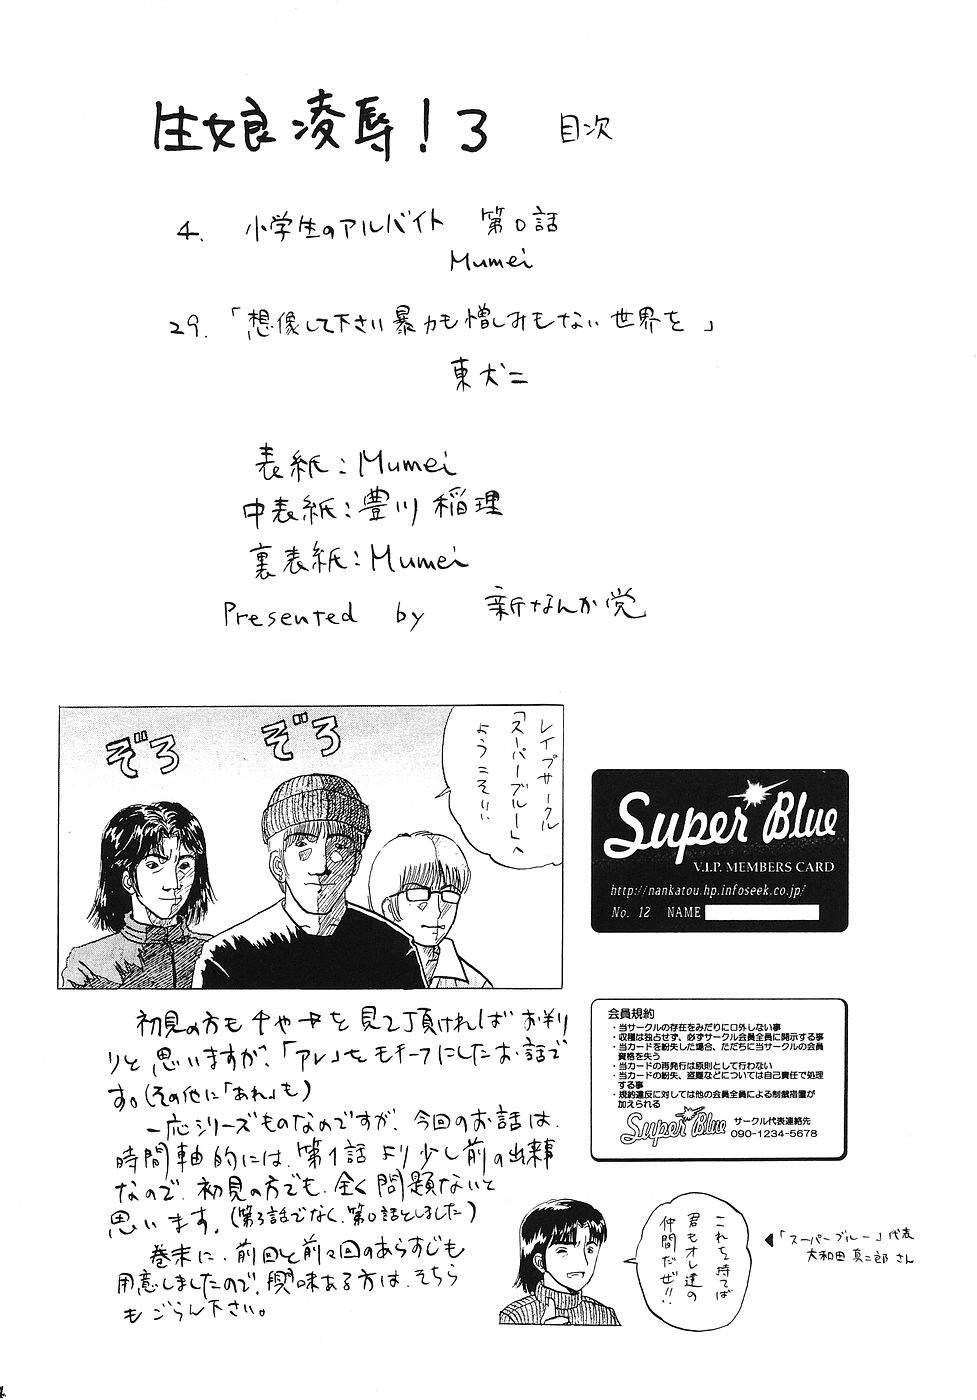 生娘凌辱!3 目次
4. 小学生のアルバイト 第0話
Mumei
29.「想像して下さい暴力も憎しみもない世界を」
東犬二
表紙:Mumei
中表紙:豊川稲理
裏表紙:Mumei
Presented by 新なんか党
ぞろ
ぞろ
レイプサークル
「スーパーブルー」へ
ようこそ!!
Super Blue
V.I.P. MEMBERS CARD
http://nankatou.hp.infoseek.co.jp/
No. 12 NAME
初見の方もチャートを見て頂ければお判
りと思いますが、「アレ」をモチーフにしたお話で
す。(その他に「あれ」も)
一応シリーズものなのですが、今回のお話は、
時間軸的には、第1話より少し前の出来事
なので、初見の方でも、全く問題ないと
思います。(第3話でなく、第0話としました)
巻末に、前回と前々回のあらすじも
用意しましたので、興味ある方は、そちら
もごらん下さい。
会員規約
・当サークルの存在をみだりに口外しない事
・収穫は独占せず、必ずサークル会員全員に開示する事
・当カードを紛失した場合、ただちに当サークルの会員
資格を失う
・当カードの再発行は原則として行わない
・当カードの紛失、盗難などについては自己責任で処理
する事
・規約違反に対しては他の会員全員による制裁措置が
加えられる
Super Blue
サークル代表連絡先
090-1234-5678
これを持てば
君もオレ達の
仲間だぜ!!
◀「スーパーブルー」代表
大和田真二郎さん